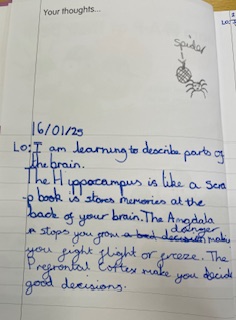 Your thoughts...
spider
16/01/25
LO: I am learning to describe parts of
the brain.
The Hippocampus is like a scra
-p book is stores memories at the
back of your brain. The Amgdala
stops you from a bad decision danger makes
you fight flight or freeze. The
Prefrontal Cortex make you decide
good decisions.